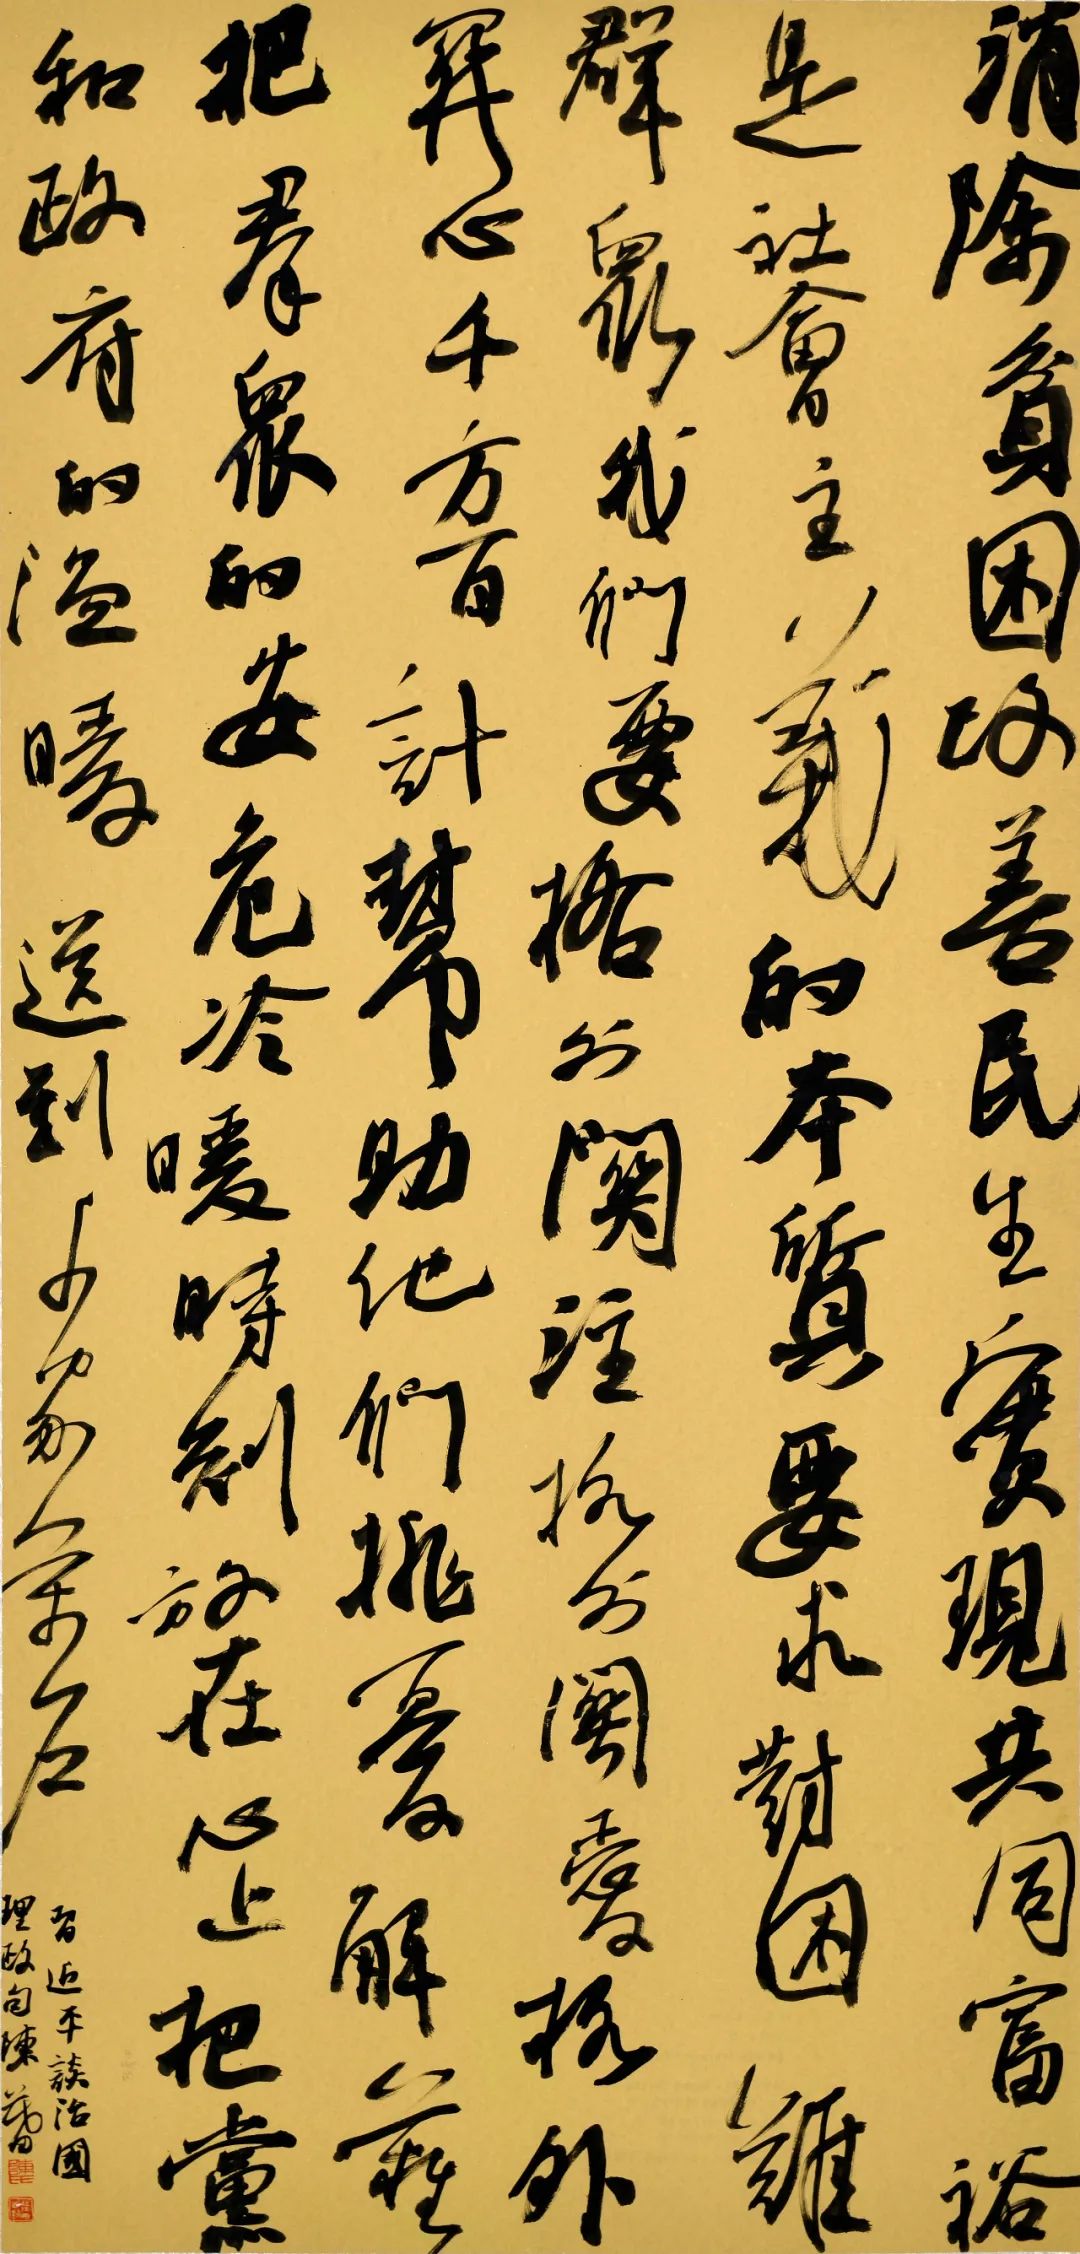 消除貧困改善民生實現共同富裕
是社會主義的本質要求對困難
群衆我們要格外關注格外關愛格外
關心千方百計幫助他們排憂解難
把羣衆的安危冷暖時刻放在心上把黨
和政府的温暖送到千家萬户
習近平談治國
理政句陳